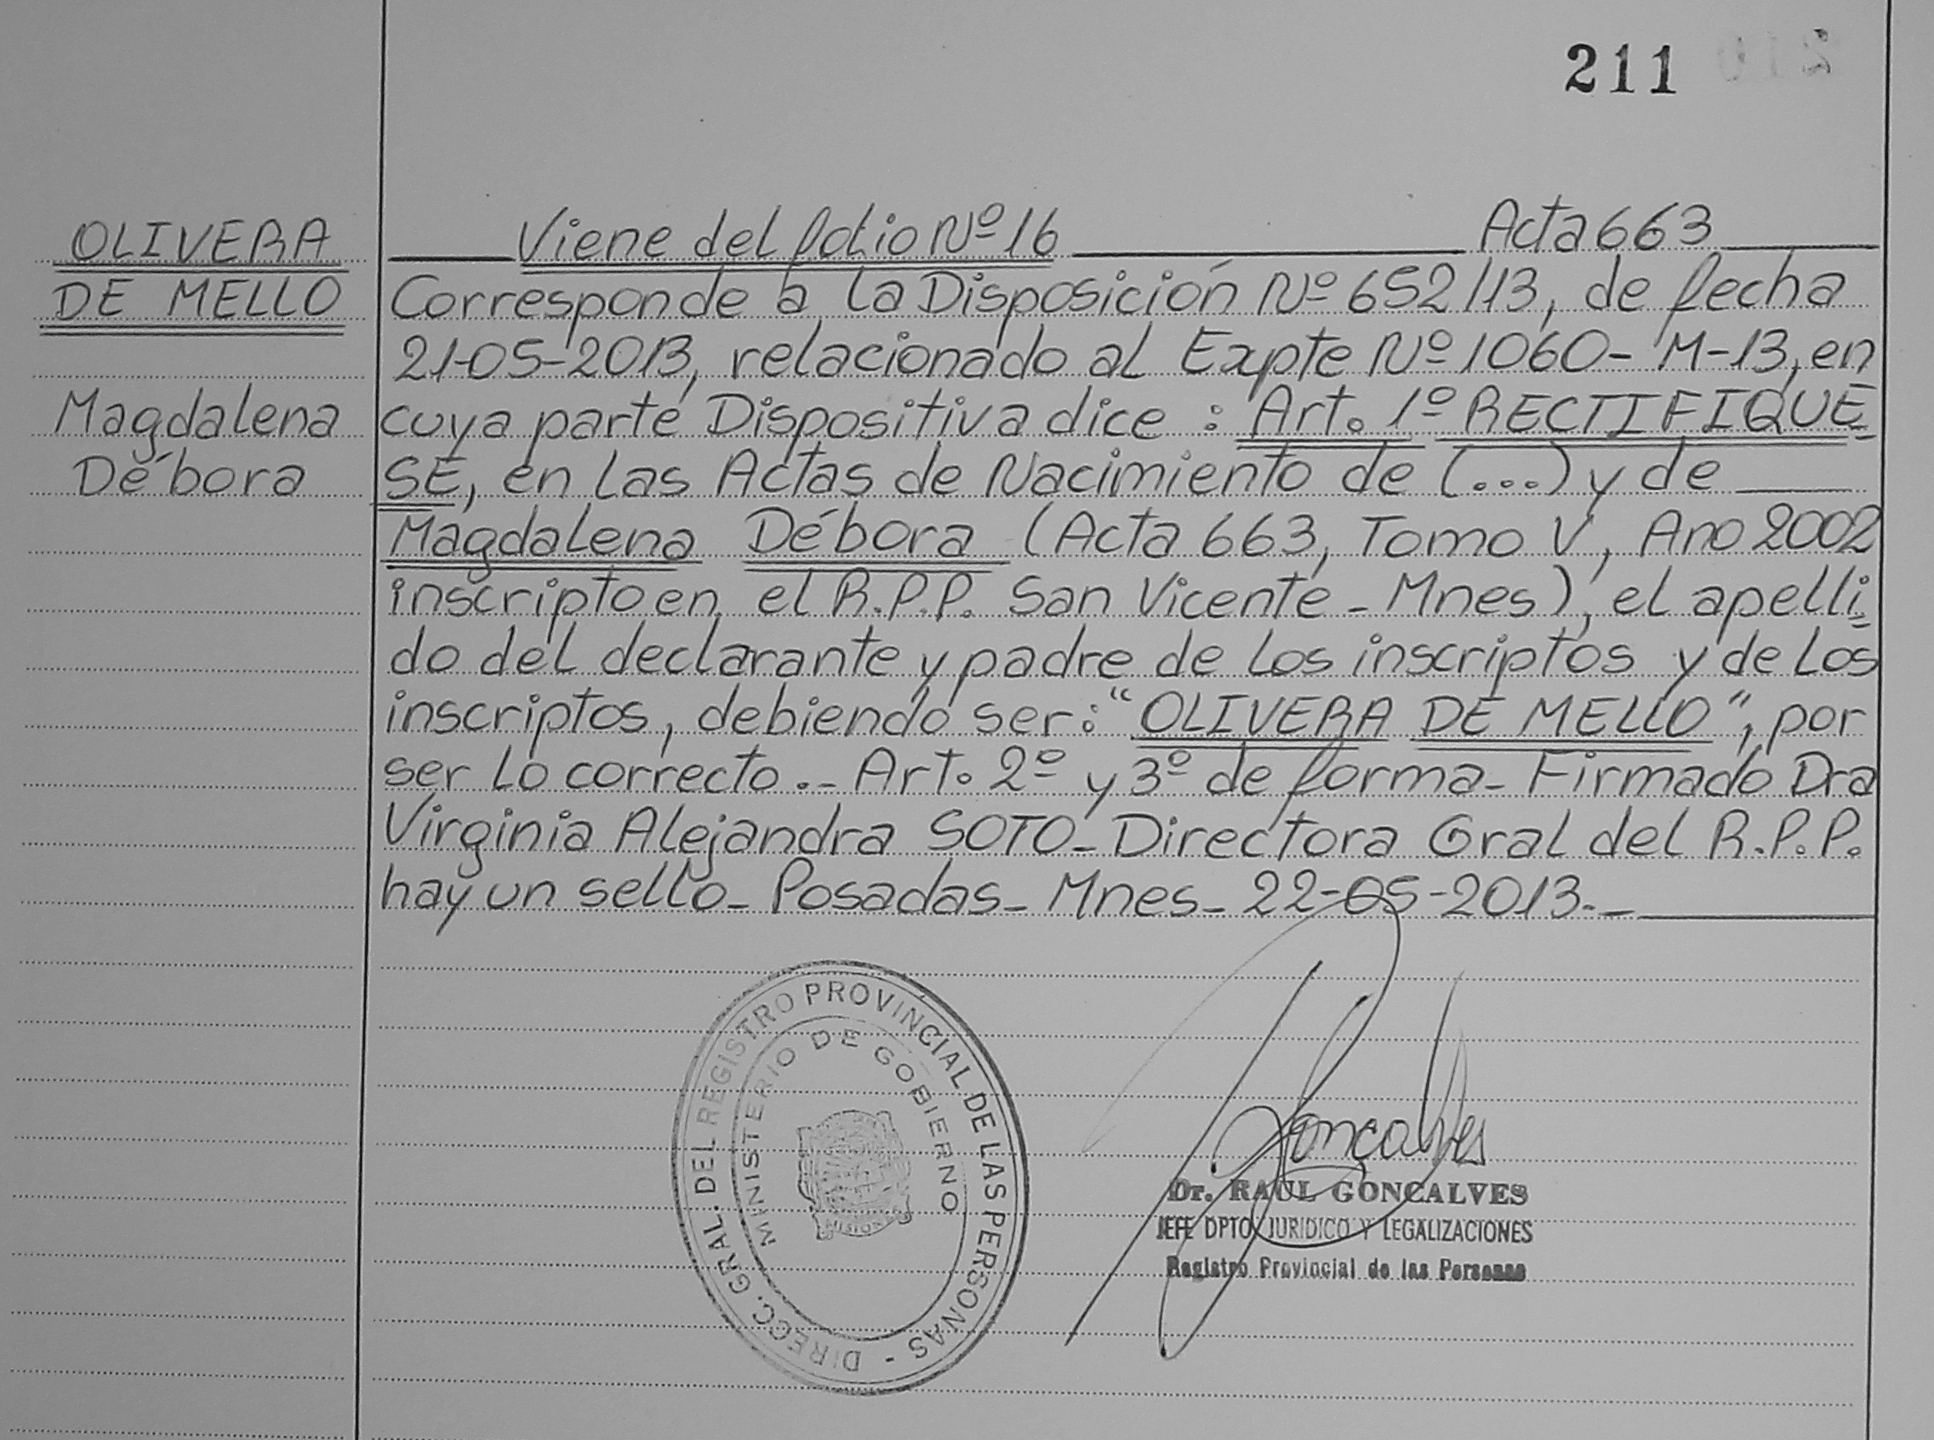 211
OLIVERA
DE MELLO
Magdalena
Débora
Viene del folio Nº 16 Acta 663
Corresponde a la Disposición Nº 652/13, de fecha
21-05-2013, relacionado al Expte Nº 1060-M-13, en
cuya parte Dispositiva dice: Art. 1º RECTIFIQUE
SE, en las Actas de Nacimiento de (...) y de
Magdalena Débora (Acta 663, Tomo V, Ano 2002
inscripto en el R.P.P. San Vicente - Mnes), el apelli=
do del declarante y padre de los inscriptos y de los
inscriptos, debiendo ser: "OLIVERA DE MELLO", por
ser lo correcto.- Art. 2º y 3º de forma- Firmado Dra
Virginia Alejandra SOTO- Directora Gral del R.P.P.
hay un sello- Posadas- Mnes- 22-05-2013.-
DIRECC. GRAL. DEL REGISTRO PROVINCIAL DE LAS PERSONAS -
MINISTERIO DE GOBIERNO
MISIONES
Gonçalves
Dr. RAUL GONCALVES
JEFE DPTO JURIDICO Y LEGALIZACIONES
Registro Provincial de las Personas